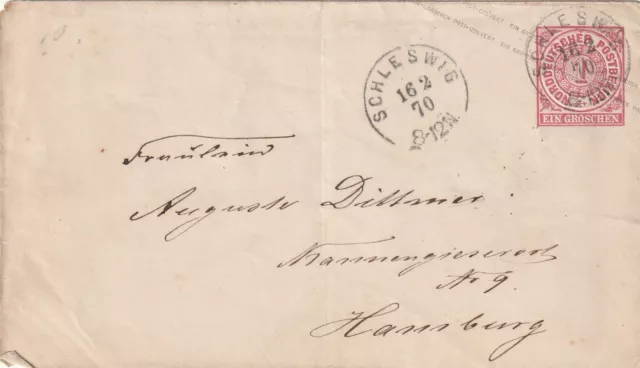 SCHLESWIG
16 2
70
8-12N.
SCHLESWIG
16 2
70
NORDDEUTSCHER POSTBEZIRK
1
EIN GROSCHEN
Fräulein
Auguste Dittmer.
Kannengieserort
No 9.
Hamburg